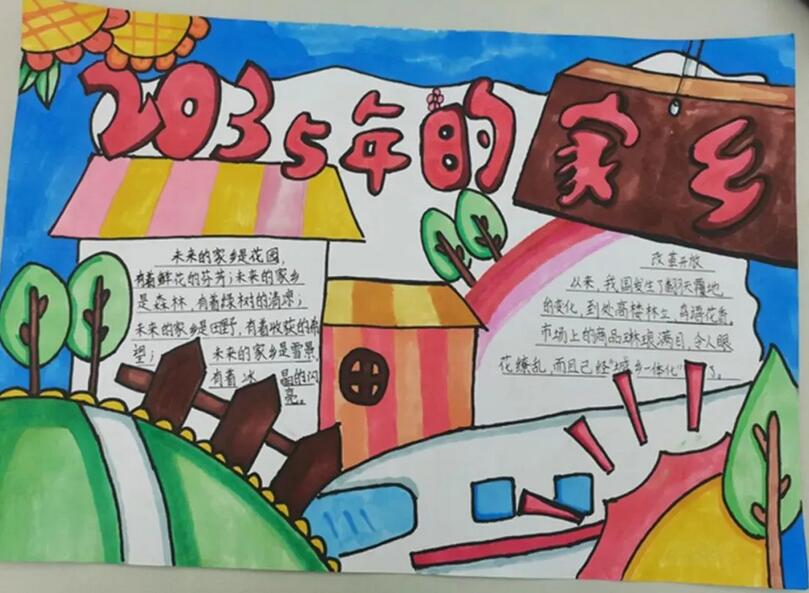 2035年的
家乡
未来的家乡是花园,
有着鲜花的芬芳;未来的家乡
是森林,有着绿树的清凉;
未来的家乡是田野,有着收获的希
望;未来的家乡是雪景,
有着冰晶的闪
亮。
改革开放
以来,我国发生了翻天覆地
的变化,到处高楼林立,鸟语花香。
市场上的商品琳琅满目,令人眼
花缭乱,而且已经"城乡一体化"了。